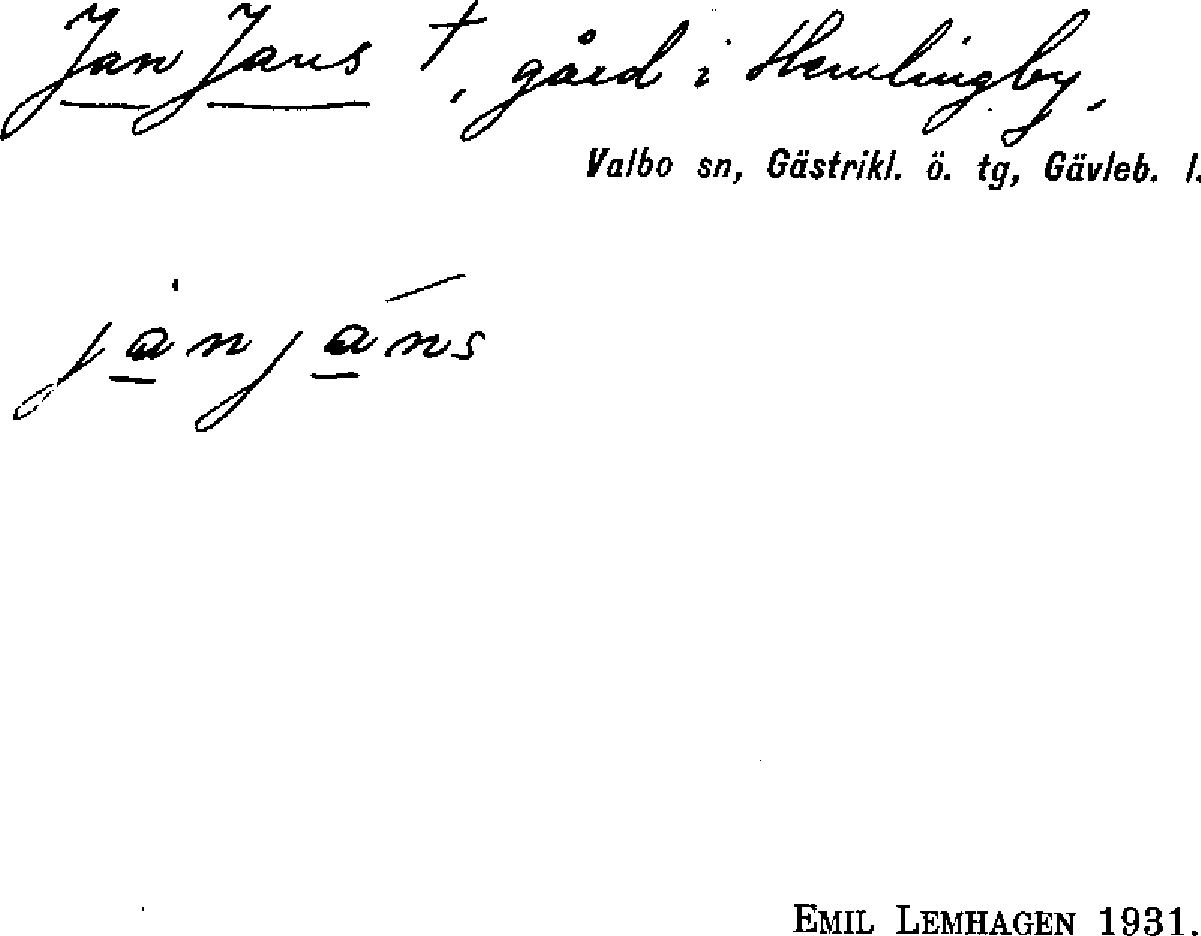 Jan Jans †, gård i Hemlingby,
Valbo sn, Gästrikl. ö. tg, Gävleb. l.
janjáns
EMIL LEMHAGEN 1931.